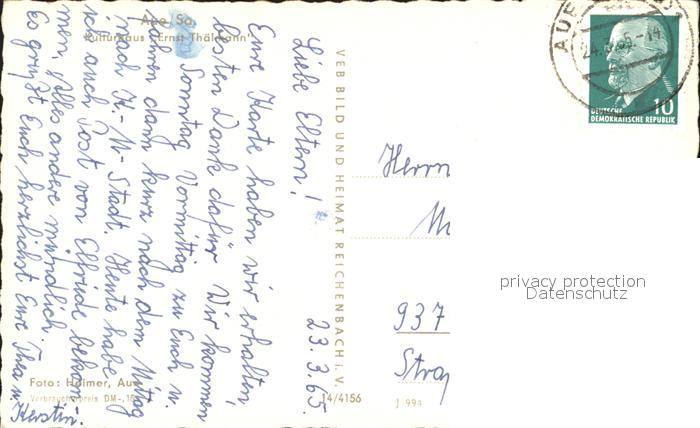 Aue/Sa.
Kulturhaus "Ernst Thälmann"
23.3.65.
Liebe Eltern!
Eure Karte haben wir erhalten,
besten Dank dafür. Wir kommen
Sonntag Vormittag zu Euch u.
fahren dann kurz nach dem Mittag
nach K.-M.-Stadt. Heute habe
ich auch Post von Elfriede bekom
men, alles andere mündlich.
Es grüßt Euch herzlichst Eure Thea u.
Kerstin.
Foto: Heimer, Aue
Verbraucherpreis DM -,15
VEB BILD UND HEIMAT REICHENBACH i. V.
14/4156
J 994
AUE
DEUTSCHE
DEMOKRATISCHE REPUBLIK
10
Herrn
937
privacy protection
Datenschutz